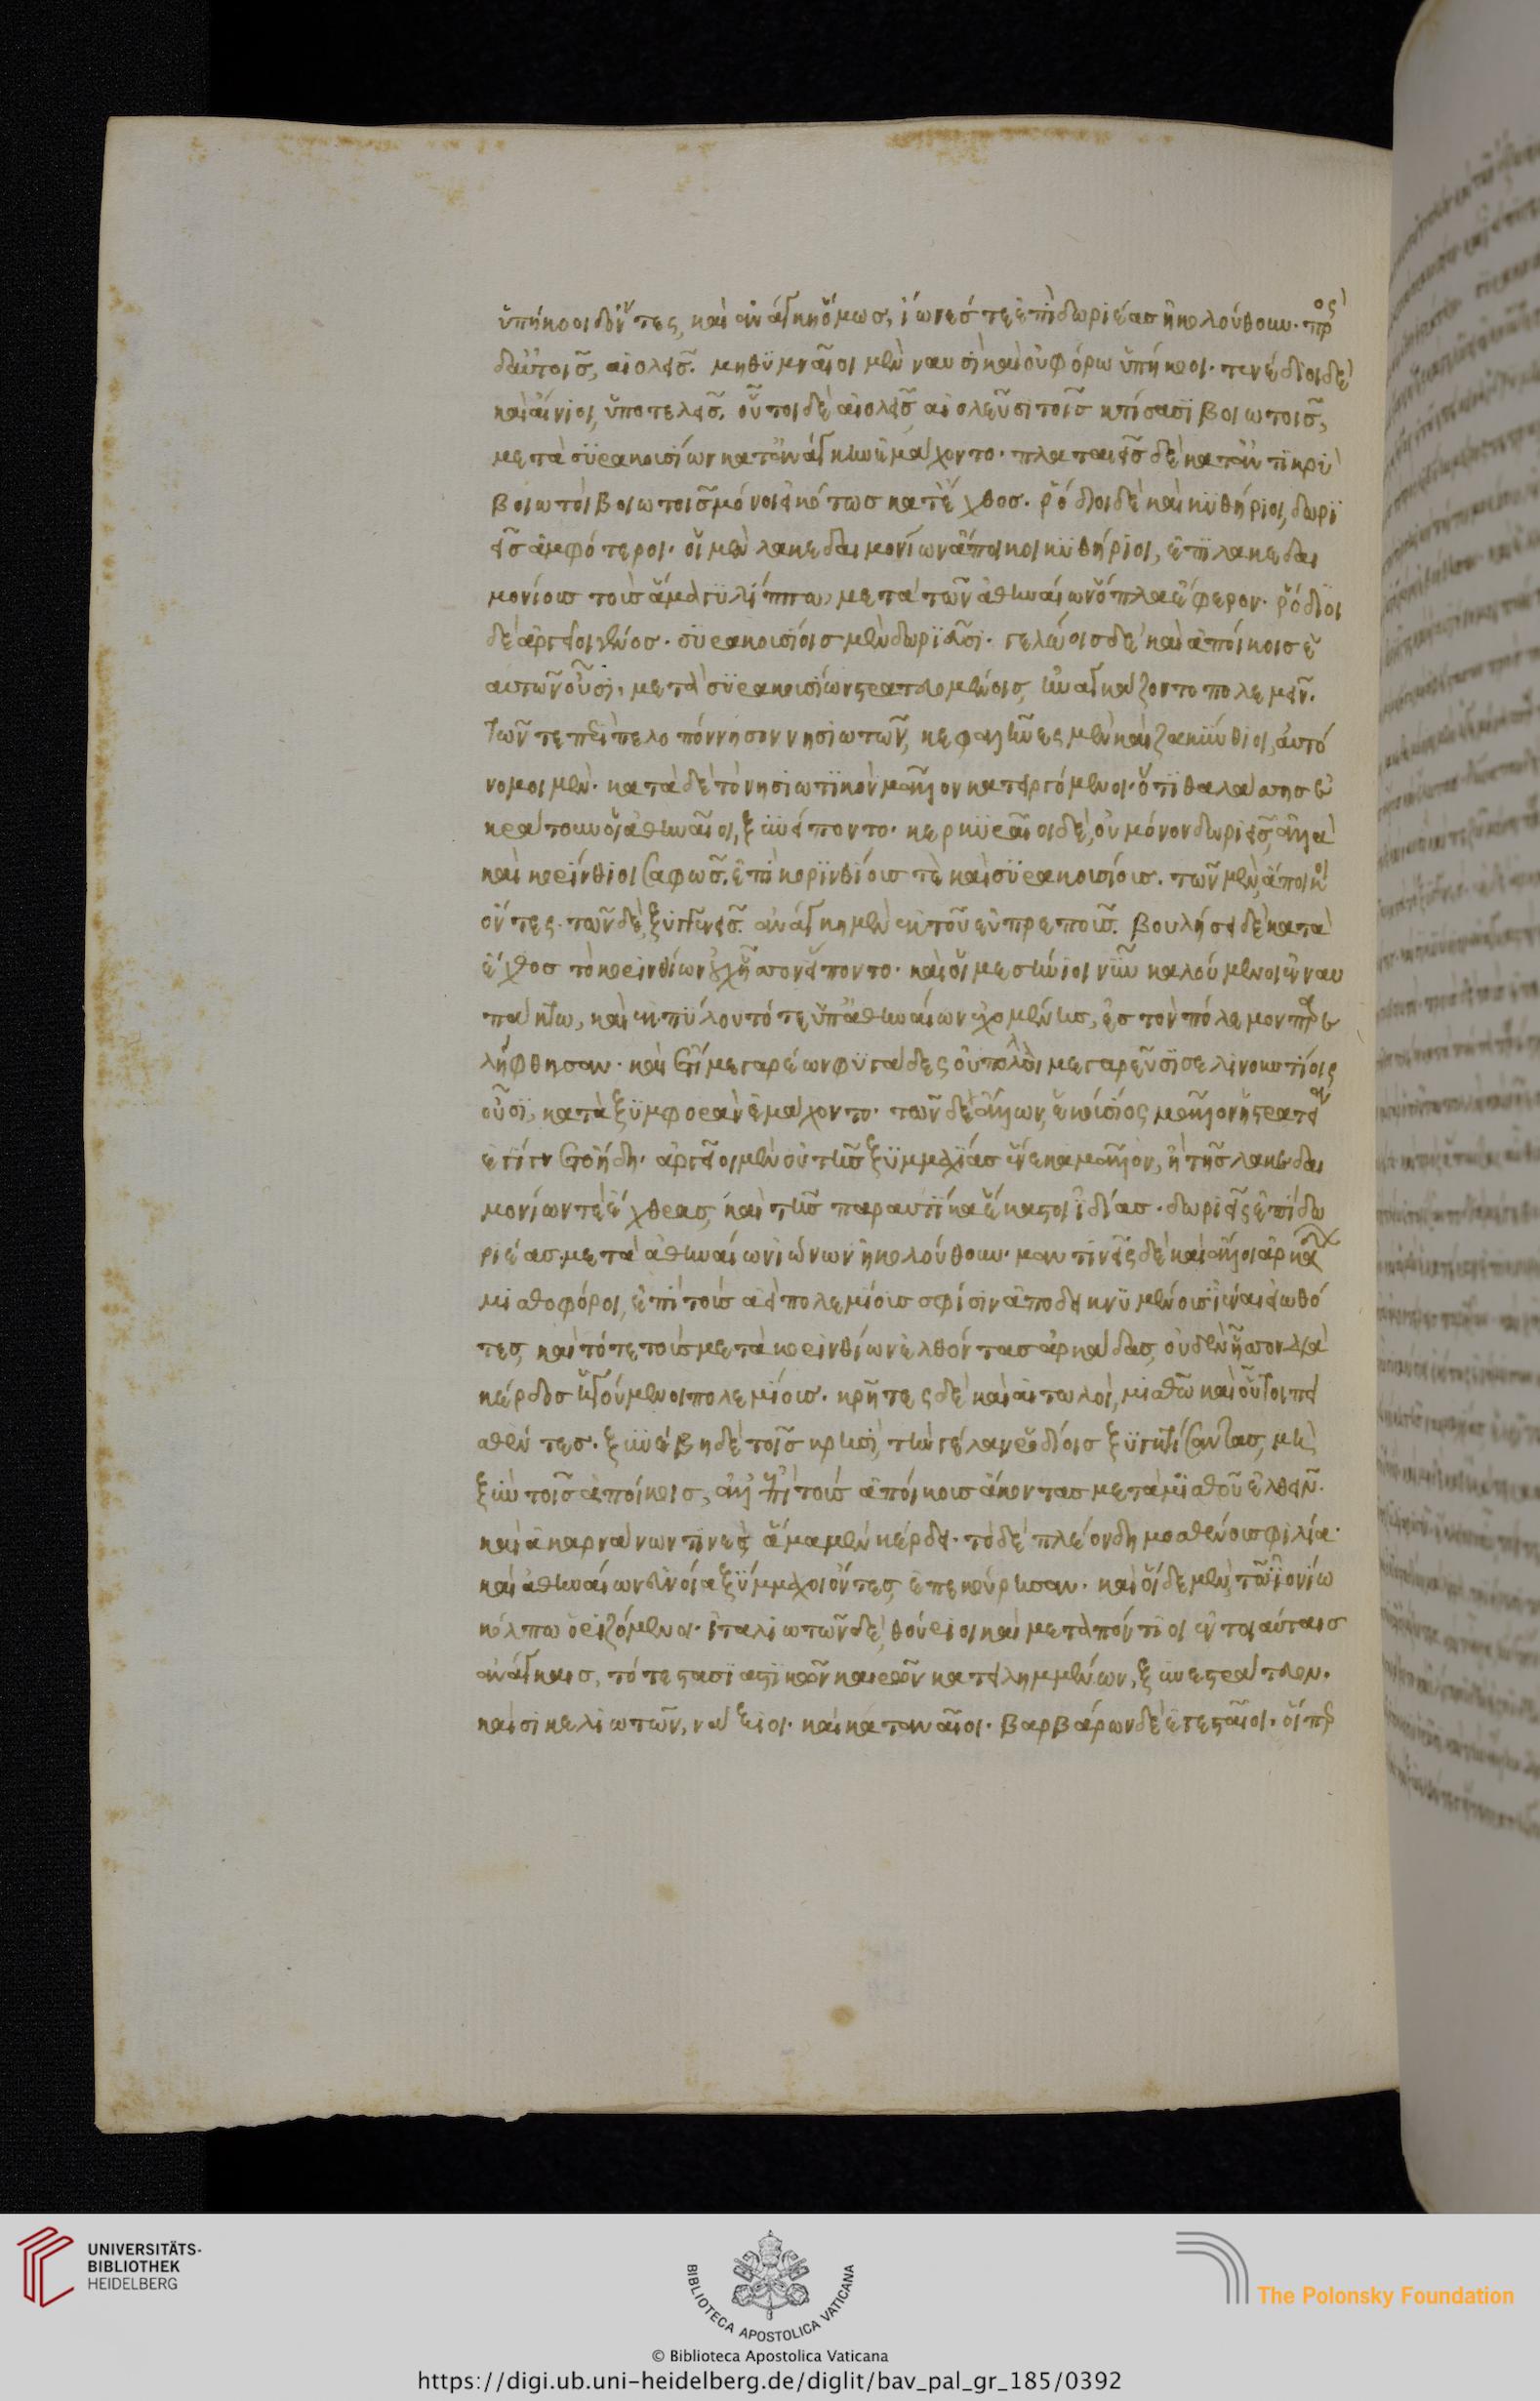 ὑπήκοοι δ' ὄντες, καὶ ἀνάγκῃ ὅμως, ἴωνές τε ἐπὶ δωριέας ἠκολούθουν. πρὸς
δ' αὐτοῖς, αἰολεῖς. μηθυμναῖοι μὲν ναυσὶ καὶ οὐ φόρω ὑπήκοοι. τενέδιοι δὲ
καὶ αἴνιοι, ὑποτελεῖς. οὗτοι δὲ αἰολεῖς αἰολεῦσι τοῖς κτίσασι βοιωτοῖς,
μετὰ συρακουσίων κατ' ἀνάγκην ἐμάχοντο. πλαταιεῖς δὲ καταντικρὺ
βοιωτοὶ βοιωτοῖς μόνοι εἰκότως κατ' ἔχθος. ῥόδιοι δὲ καὶ κυθήριοι, δωρι
εῖς ἀμφότεροι. οἱ μὲν λακεδαιμονίων ἄποικοι κυθήριοι, ἐπὶ λακεδαι
μονίους τοὺς ἅμα γυλίππω, μετὰ τῶν ἀθηναίων ὅπλα ἔφερον. ῥόδιοι
δὲ ἀργεῖοι γένος. συρακουσίοις μὲν δωριεῦσι. γελώοις δὲ καὶ ἀποίκοις ἑ
αυτῶν οὖσι, μετὰ συρακουσίων στρατευομένοις, ἠναγκάζοντο πολεμεῖν.
τῶν τε περὶ πελοπόννησον νησιωτῶν, κεφαλλῆνες μὲν καὶ ζακύνθιοι, αὐτό
νομοι μὲν. κατὰ δὲ τὸ νησιωτικὸν μᾶλλον κατειργόμενοι. ὅτι θαλάσσης ἐ
κράτουν οἱ ἀθηναῖοι, ξυνείποντο. κερκυραῖοι δὲ, οὐ μόνον δωριεῖς, ἀλλὰ
καὶ κορίνθιοι σαφῶς. ἐπὶ κορινθίους τὲ καὶ συρακουσίους. τῶν μὲν, ἄποικοι
ὄντες. τῶν δὲ, ξυγγενεῖς. ἀνάγκη μὲν ἐκ τοῦ εὐπρεποῦς. βουλήσει δὲ κατὰ
ἔχθος τὸ κορινθίων οὐχ' ἧσσον εἵποντο. καὶ οἱ μεσήνιοι νῦν καλούμενοι ἐν ναυ
πάκτω, καὶ ἐκ πύλου τότε ὑπ' ἀθηναίων ἐχομένης, ἐς τὸν πόλεμον παρε
λήφθησαν. καὶ ἔτι μεγαρέων φυγάδες οὐ πολλοὶ μεγαρεῦσι σελινουντίοις
οὖσι, κατὰ ξυμφορὰν ἐμάχοντο. τῶν δὲ ἄλλων, ἑκούσιος μᾶλλον ἡ στρατεία
ἐγίγνετο ἤδη. ἀργεῖοι μὲν οὐ τῆς ξυμμαχίας ἕνεκα μᾶλλον, ἢ τῆς λακεδαι
μονίων τὲ ἔχθρας, καὶ τῆς παραυτίκα ἕκαστοι ἰδίας. δωριεῖς ἐπὶ δω
ριέας μετὰ ἀθηναίων ἰώνων ἠκολούθουν. μαντινεῖς δὲ καὶ ἄλλοι ἀρκάδων
μισθοφόροι, ἐπὶ τοὺς αἰεὶ πολεμίους σφίσιν ἀποδεικνυμένους ἰέναι εἰωθό
τες, καὶ τότε τοὺς μετὰ κορινθίων ἐλθόντας ἀρκάδας, οὐδὲν ἧσσον διὰ
κέρδος ἡγούμενοι πολεμίους. κρῆτες δὲ καὶ αἰτωλοὶ, μισθῶ καὶ οὗτοι πει
σθέντες. ξυνέβη δὲ τοῖς κρησὶ, τὴν γέλαν ῥοδίοις ξυγκτίσαντας, μὴ
ξὺν τοῖς ἀποίκοις, ἀλλ' ἐπὶ τοὺς ἀποίκους ἄκοντας μετὰ μισθοῦ ἐλθεῖν.
καὶ ἀκαρνάνων τινὲς ἅμα μὲν κέρδει. τὸ δὲ πλέον δημοσθένους φιλία.
καὶ ἀθηναίων εὐνοία ξύμμαχοι ὄντες, ἐπεκούρησαν. καὶ οἵδε μὲν, τῶ ἰονίω
κόλπω ὁριζόμενοι. ἰταλιωτῶν δὲ, θούριοι καὶ μεταπόντιοι ἐν τοιαύταις
ἀνάγκαις, τότε στασιαστικῶν καιρῶν κατειλημμένων, ξυνεστράτευον.
καὶ σικελιωτῶν, νάξιοι. καὶ καταναῖοι. βαρβάρων δὲ ἐγεσταῖοι. οἵπερ
UNIVERSITÄTS-
BIBLIOTHEK
HEIDELBERG
BIBLIOTECA APOSTOLICA VATICANA
The Polonsky Foundation
© Biblioteca Apostolica Vaticana
https://digi.ub.uni-heidelberg.de/diglit/bav_pal_gr_185/0392